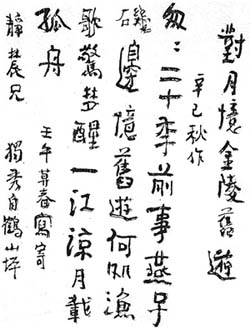 對月憶金陵舊遊
辛巳秋作
匆〻二十年前事燕子
磯邊憶舊遊何処漁
歌驚夢醒一江涼月載
孤舟
壬午暮春寫寄
靜農兄
獨秀自鶴山坪